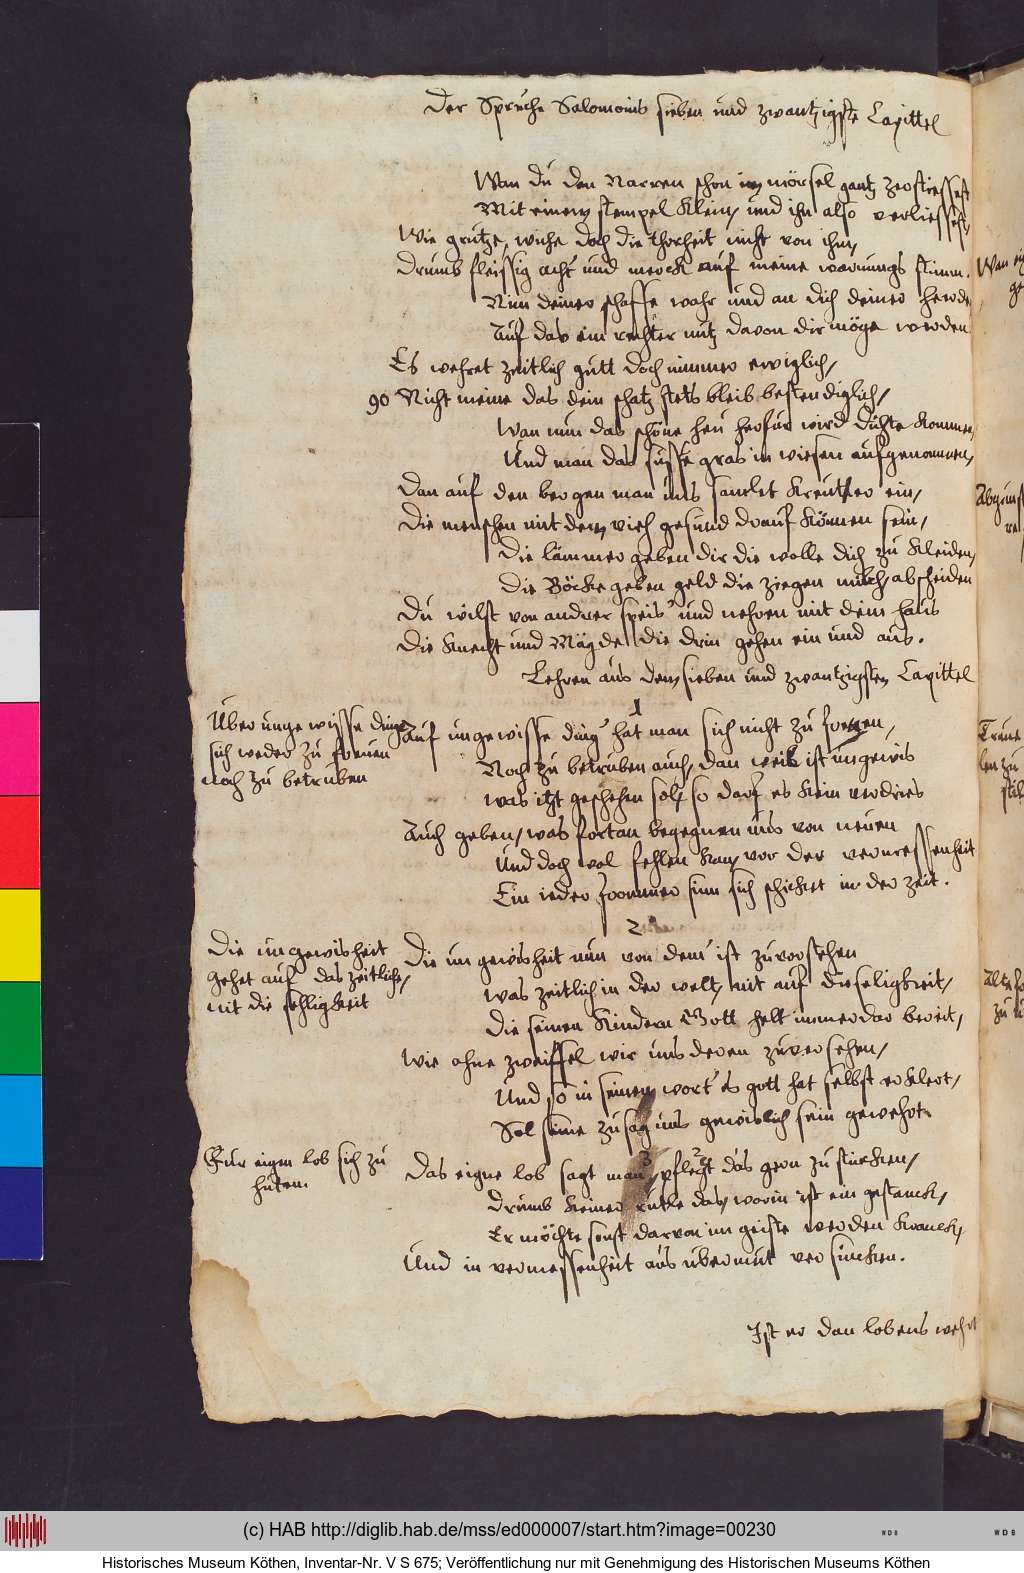 Der Spruche Salomonis sieben und zwantzigste Capittel
Wan du den Narren schon im mörsel gantz zerstiessest
Mit einem stempel klein, und ihn also verliessest,
Wie grutze, wiche doch die thorheit nicht von ihm,
Drumb fleissig acht und merck auf meine warnungs stimm.
Nim deiner schaffe wahr und an dich deiner herde,
Auf das ein rechter nutz davon dir möge werden
Es wehret zeitlich gutt doch nimmer ewiglich,
90 Nicht meine das dein schatz stets bleib bestendiglich,
Wan nun das schöne heu herfur wird dichte kommen,
Und man das susse gras in wiesen aufgenommen,
Dan auf den bergen man uns samlet kreutter ein,
Die menschen mit dem vieh gesund drauf können sein,
Die lämmer geben dir die wolle dich zu kleiden,
Die Böcke geben geld die ziegen milch, abscheiden
Du wilst von andrer speis' und nehren mit dein haus
Die knecht und Mägde die drin gehen ein und aus.
Lehren aus dem sieben und zwantzigsten Capittel
1
Über ungewisse ding
sich weder zu freuen
noch zu betruben
Auf ungewisse ding' hat man sich nicht zu freuen,
Noch zu betruben auch, dan weil es ist ungewis
was itzt geschehen sol, so darf es kein verdries
Auch geben, was fortan begegnen uns von neuen
Und doch wol fehlen kan, vor der vermessenheit
Ein ieder frommer sinn sich schicket in der zeit.
2
Die ungewisheit
gehet auf das zeitliche,
nit die sehligkeit
Die ungewisheit nun von dem' ist zuverstehen
was zeitlich in der welt, nit auf die seligkeit,
Die seinen kindern Gott helt immerdar bereit,
Wie ohne zweiffel wir uns deren zuversehen,
Und so in seinem wort' es gott hat selbst erklert,
Sol seine zusag uns gewislich sein gewehrt.
3
Fur eigen lob sich zu
huten.
Das eigne lob sagt man, pflegt das gern zu stincken,
Drumb keiner rutle das, worin ist ein gestanck,
Er möchte sonst darvon im geiste werden kranck,
Und in vermessenheit aus ubermut versincken.
Ist er dan lobens wehrt